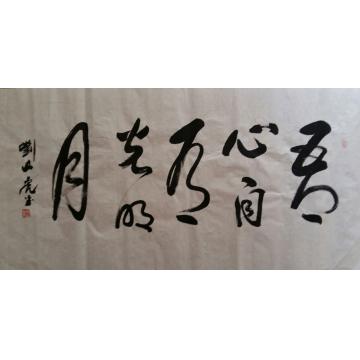 吾
心自
有
光明
月
劉山虎书